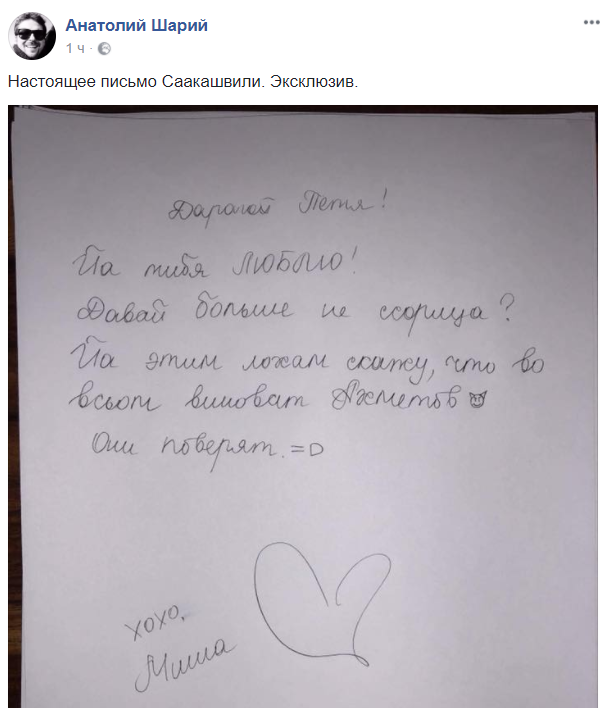 Анатолий Шарий
1 ч ·
Настоящее письмо Саакашвили. Эксклюзив.
Дарагой Петя!
Йа тибя ЛЮБЛЮ!
Давай больше не ссорица?
Йа этим лохам скажу, что во
всьом виноват Ахметов
Они поверят. =D
хохо,
Миша